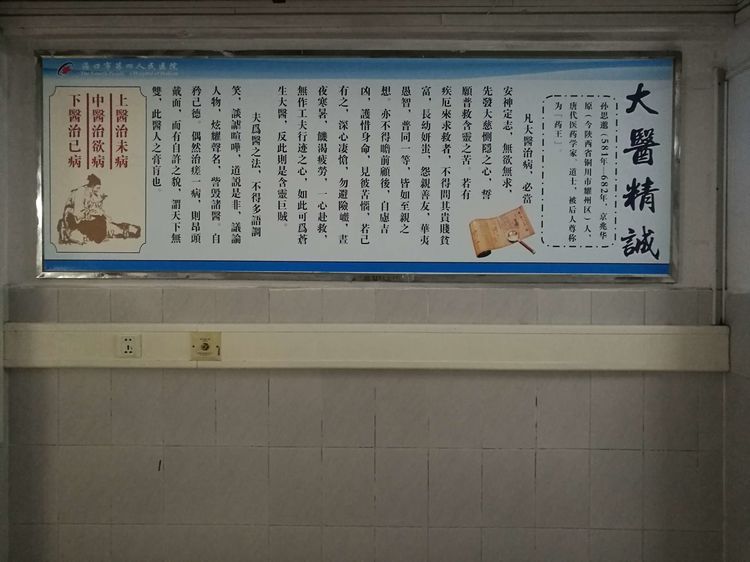 海口市第四人民医院
The Fourth People's Hospital of Haikou
大醫精誠
孙思邈（581年—682年，京兆华
原（今陕西省铜川市耀州区）人，
唐代医药学家、道士，被后人尊称
为「药王」。
凡大醫治病，必當
安神定志，無欲無求，
先發大慈惻隱之心，誓
願普救含靈之苦。若有
疾厄來求救者，不得問其貴賤貧
富，長幼妍蚩，怨親善友，華夷
愚智，普同一等，皆如至親之
想。亦不得瞻前顧後，自慮吉
凶，護惜身命，見彼苦惱，若己
有之，深心凄愴，勿避險巇，晝
夜寒暑，饑渴疲勞，一心赴救，
無作工夫行迹之心，如此可爲蒼
生大醫，反此則是含靈巨贼。
夫爲醫之法，不得多語調
笑，談謔喧嘩，道説是非，議論
人物，炫耀聲名，訾毁諸醫。自
矜己德。偶然治瘥一病，則昂頭
戴面，而有自許之貌，謂天下無
雙，此醫人之膏肓也。
上醫治未病
中醫治欲病
下醫治已病